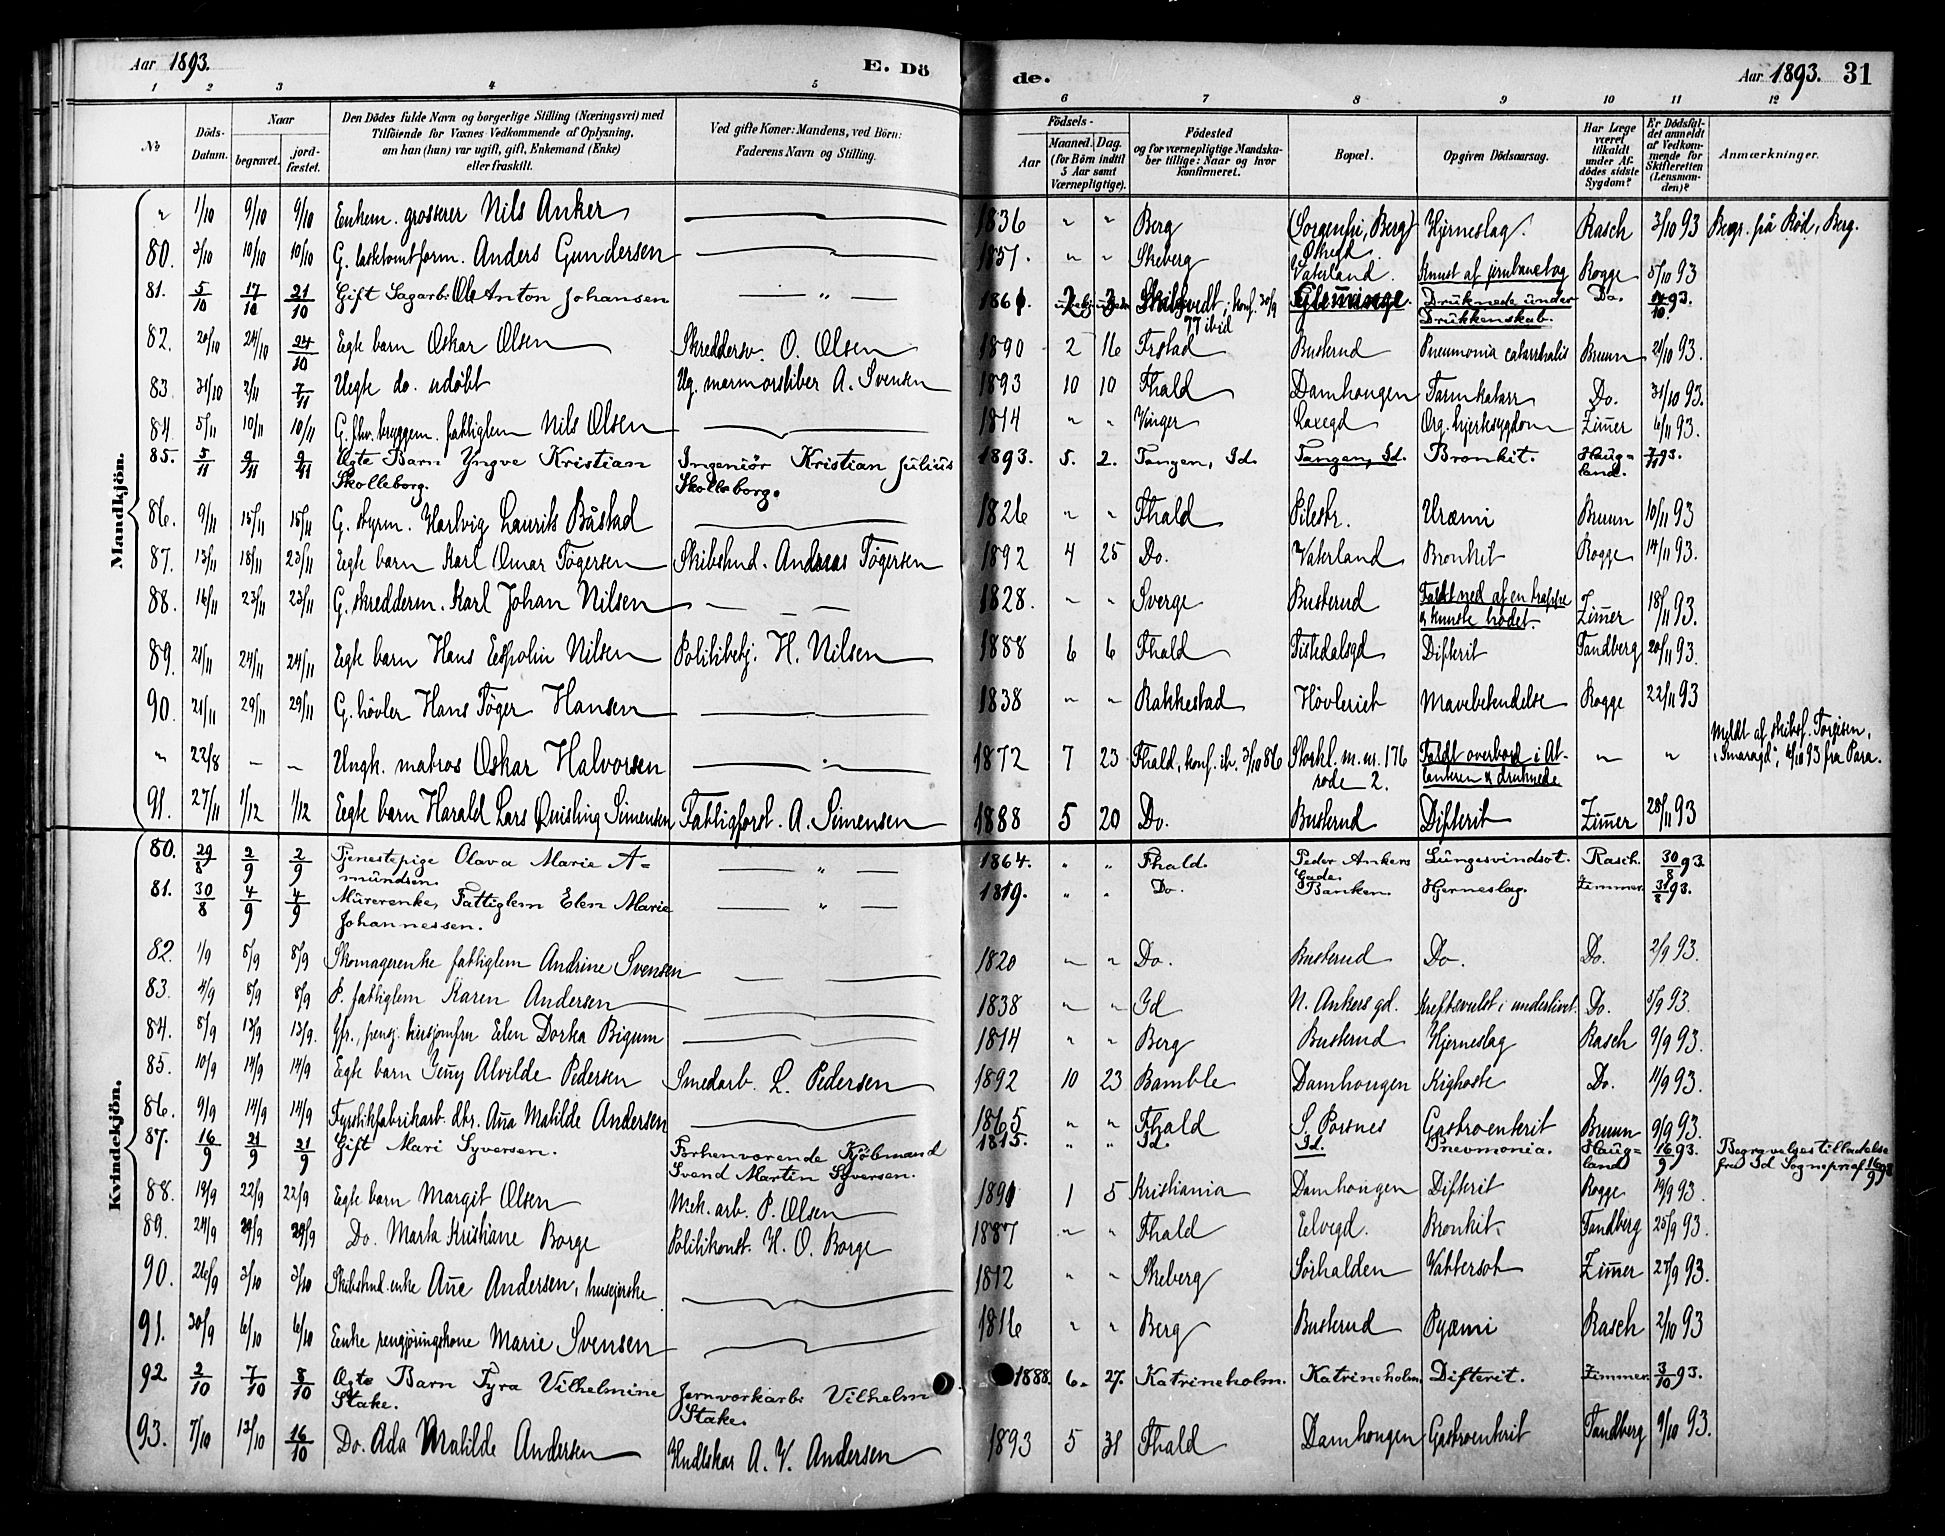 Aar 1893. E. Dö de. Aar 1893. 31
1 2 3 4 5 6 7 8 9 10 11 12
№ Döds-Datum. Naar begravet. jord-fæstet. Den Dödes fulde Navn og borgerlige Stilling (Næringsvei) med Tilföiende for Voxnes Vedkommende af Oplysning, om han (hun) var ugift, gift, Enkemand (Enke) eller fraskilt. Ved gifte Koner: Mandens, ved Börn: Faderens Navn og Stilling. Födsels- Aar Maaned. Dag. (for Börn indtil 5 Aar samt Værnepligtige). Födested og for værnepligtige Mandskaber tillige: Naar og hvor konfirmeret. Bopæl. Opgiven Dödsaarsag. Har Læge været tilkaldt under Afdödes sidste Sygdom? Er Dödsfaldet anmeldt af Vedkommende for Skifteretten (Lensmanden)? Anmærkninger.
Mandkjön.
" 1/10 9/10 9/10 Enkem. grosserer Nils Anker 1836 " " Berg (Sorgenfri, Berg) Hjerneslag. Rasch 3/10 93 Begr. på Röd, Berg.
80. 3/10 10/10 10/10 G. lasktomtform. Anders Gundersen 1851. " " Skeberg Vaterland. Knust af jernbanetog Rogge 5/10 93
81. 5/10 17/10 21/10 Gift Sagarb. Ole Anton Johansen — " — 1861 2 3 Skibtvedt; konf. 30/9 77 ibid Glemminge. Druknede under Drukkenskab. Do. 14/10 93.
82. 20/10 24/10 24/10 Egte barn Oskar Olsen Skreddersv. O. Olsen 1890 2 16 Frstad Busterud Pneumonia catarrhalis Bruun 21/10 93.
83. 31/10 3/11 7/11 Uegte do. udöbt Ug. marmorsliber A. Svensen 1893 10 10 Fhald Damhougen Tarmkatarr Do. 31/10 93.
84. 5/11 10/11 10/11 G. fhv. bryggem. fattiglem Nils Olsen 1814 " " Vinger Laxegd Org. hjertesygdom Zimmer 6/11 93.
85. 5/11 9/11 9/11 Egte Barn Yngve Kristian Skolleborg. Ingeniör Kristian Julius Skolleborg. 1893. 5. 2. Tangen, Id. Tangen, Id. Bronkit. Haugland. 7/11 93.
86. 9/11 15/11 15/11 G. styrm. Hartvig Laurits Båstad 1826 " " Fhald Pilestr. Uræmi Bruun 10/11 93
87. 13/11 18/11 23/11 Egte barn Karl Omar Tögersen Skibstmd. Andreas Tögersen 1892 4 25 Do. Vaterland Bronkit Rogge 14/11 93.
88. 16/11 23/11 23/11 G. skredderm. Karl Johan Nilsen 1828. " " Sverge Busterud Faldt ned af en trappe & knuste hodet. Zimmer 18/11 93.
89. 21/11 24/11 24/11 Egte barn Hans Espolin Nilsen Politibetj. H. Nilsen 1888 6 6 Fhald Tistedalsgd Difterit Tandberg 20/11 93.
90. 21/11 29/11 29/11 G. hövler Hans Töger Hansen 1838 " " Rakkestad Hövleriet Mavebetendelse Rogge 22/11 93
" 22/8 — — Ungk. matros Oskar Halvorsen 1872 7 23 Fhald, konf. ib. 3/10 86 Storkl. m. nr. 176 rode 2. Faldt overbord i Atlanteren & druknede " " Meldt af skibsf. Torgisen, "Smaragd", 6/10 93 fra Para.
91. 27/11 1/12 1/12 Egte barn Harald Lars Quisling Simensen Fattigforst. A. Simensen 1888 5 20 Do. Busterud Difterit Zimmer 28/11 93
Kvindekjön.
80. 29/8 2/9 2/9 Tjenestepige Olava Marie Amundsen. — " — 1864. " " Fhald. Peder Ankers Gade. Lungesvindsot. Rasch. 30/8 93.
81. 30/8 4/9 4/9 Murerenke, Fattiglem Elen Marie Johannessen. — " — 1819. " " Do. Banken. Hjerneslag. Zimmer. 31/8 93.
82. 1/9 5/9 5/9 Skomagerenke fattiglem Andrine Svensen 1820 " " Do. Busterud Do. Do. 2/9 93.
83. 4/9 8/9 8/9 P. fattiglem Karen Andersen 1838 " " Id N. Ankers gd. Kreftsvulst i underlivet. Do. 5/9 93.
84. 8/9 13/9 13/9. Jfr., pensj. husjomfru Elen Dorka Bigum 1814 " " Berg Busterud Hjerneslag Rasch 9/9 93.
85. 10/9 14/9 14/9 Egte barn Jenny Alvilde Pedersen Smedarb. L. Pedersen 1892 10 23 Bamble Damhougen Kighoste Do. 11/9 93.
86. 9/9 14/9 14/9 Fyrstikfabrikarb. dtr. Anna Matilde Andersen 1865 " " Fhald S. Porsnes Gastroenterit Bruun 9/9 93.
87. 16/9 21/9 21/9 Gift Mari Syversen. Forhenværende Kjöbmand Svend Martin Syversen. 1815. " " Id. Id. Pnevmonia. Haugland 16/9 93. Begravelsestilladelse fra Id Sognepræst 16/9 93
88. 19/9 22/9 22/9 Egte barn Margit Olsen Mek. arb. P. Olsen 1891 1 5 Kristiania Damhougen Difterit Rogge 19/9 93.
89. 24/9 29/9 29/9 Do. Marta Kristiane Borge Politikonst. H. O. Borge 1887 " " Fhald Elvegd. Bronkit. Tandberg 25/9 93.
90. 26/9 3/10 3/10 Skibstmd. enke Anne Andersen, huseierske 1812 " " Skeberg Sörhalden Vattersot Zimmer 27/9 93.
91. 30/9 6/10 6/10 Enke rengjöringskone Marie Svensen 1816 " " Berg Busterud Pyæmi Rasch 2/10 93
92 2/10 7/10 8/10 Egte Barn Tyra Vilhelmine Stake. Jernverkarb. Vilhelm Stake. 1888. 6. 27. Katrineholm. Katrineholm. Difterit. Zimmer. 3/10 93.
93. 7/10 13/10 16/10 Do. Ada Matilde Andersen Hndlskar A. V. Andersen 1893 5 31 Fhald Damhougen Gastroenterit Tandberg 9/10 93.